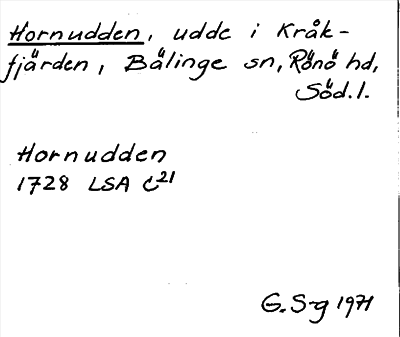 Hornudden, udde i Kråk-
fjärden, Bälinge sn, Rönö hd,
Söd. l.
Hornudden
1728 LSA C21
G. S-g 1971